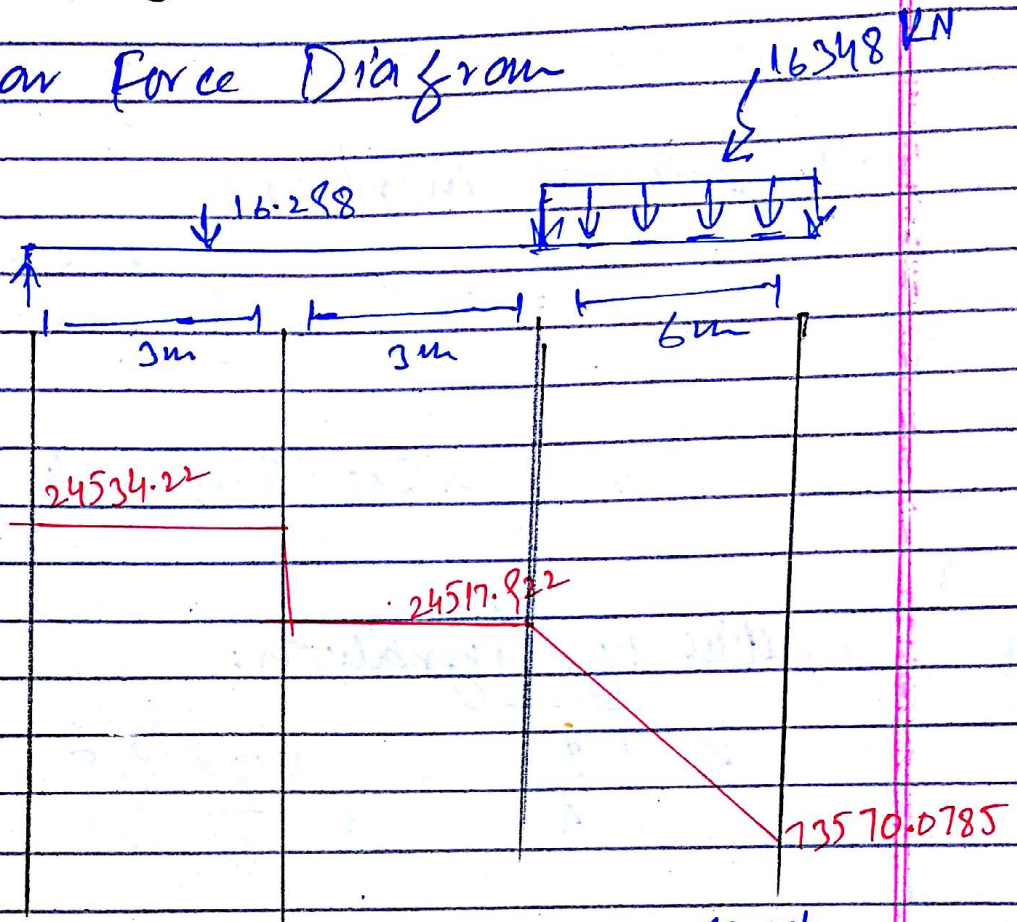 ar Force Diagram
16348 KN
16.298
3m 3m 6m
24534.22
24517.922
73570.0785